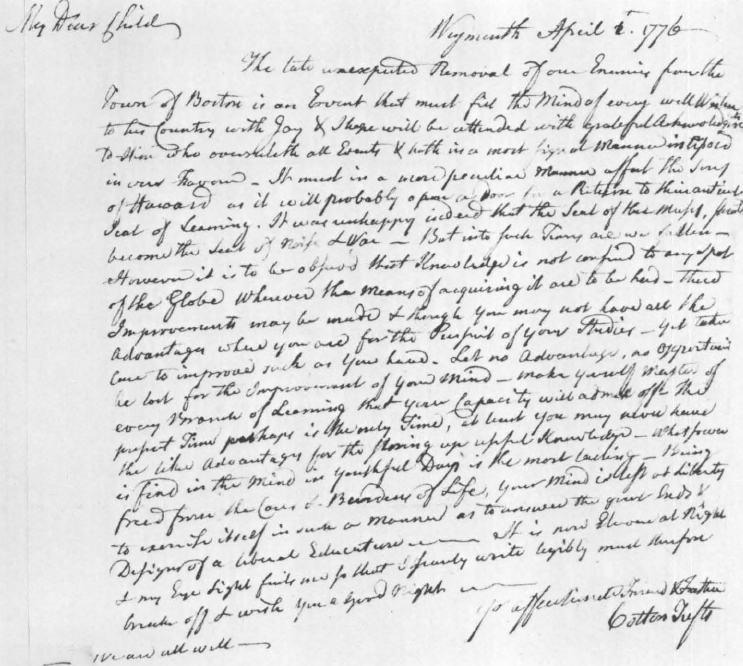 My Dear Child
Weymouth April 2d. 1776
The late unexpected Removal of our Enemies from the
Town of Boston is an Event that must fill the Mind of every well Wisher
to his Country with Joy & I hope will be attended with grateful Acknowledgmts
to Him who overruleth all Events & hath in a most signal Manner interposd
in our Favour - It must in a more peculiar Manner affect the Sons
of Harvard as it will probably open a Door for a Return to their antient
Seat of Learning. It was unhappy indeed that the Seat of the Muses, should
become the Seat of Noise & War - But into such Times are we fallen -
However it is to be observd that Knowledge is not confind to any Spot
of the Globe Wherever the Means of acquiring it are to be had - there
Improvements may be made & though you may not have all the
Advantages where you are for the Pursuit of your Studies - yet take
Care to improve such as you have. Let no Advantage, no Opportunity
be lost for the Improvement of your Mind - make yourself Master of
every Branch of Learning that your Capacity will admit off. The
present Time perhaps is the only Time, at least you may never have
the like Advantages for the storing up usefull Knowledge - Whatsoever
is fixd in the Mind in youthful Days is the most lasting - Being
freed from the Cares & Burdens of Life, your Mind is left at Liberty
to exercise itself in such a Manner as to answer the great Ends &
Designs of a liberal Education It is now Eleven at Night
& my Eye Sight fails me so that I scarcely write legibly must therefore
break off & wish you a good Night
Yr affectionate Friend & Father
Cotton Tufts
We are all well -